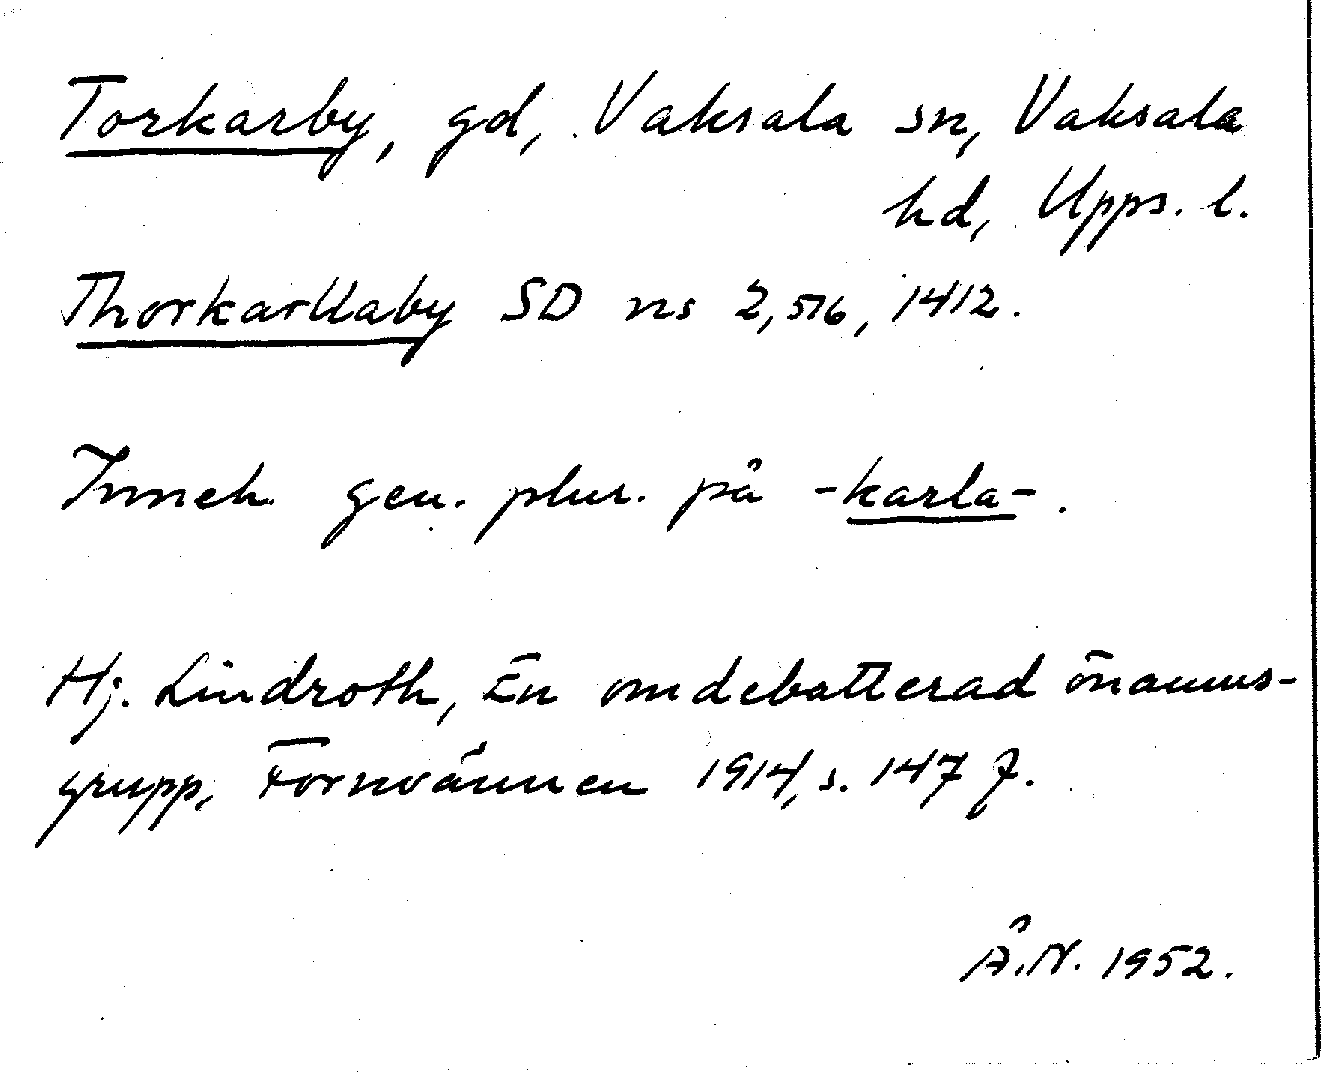 Torkarby, gd, Vaksala sn, Vaksala
hd, Upps. l.
Thorkarllaby SD ns 2,576, 1412.
Inneh. gen. plur. på -karla-.
Hj. Lindroth, En omdebatterad önamns-
grupp, Fornvännen 1914, s. 147 f.
Å.N. 1952.